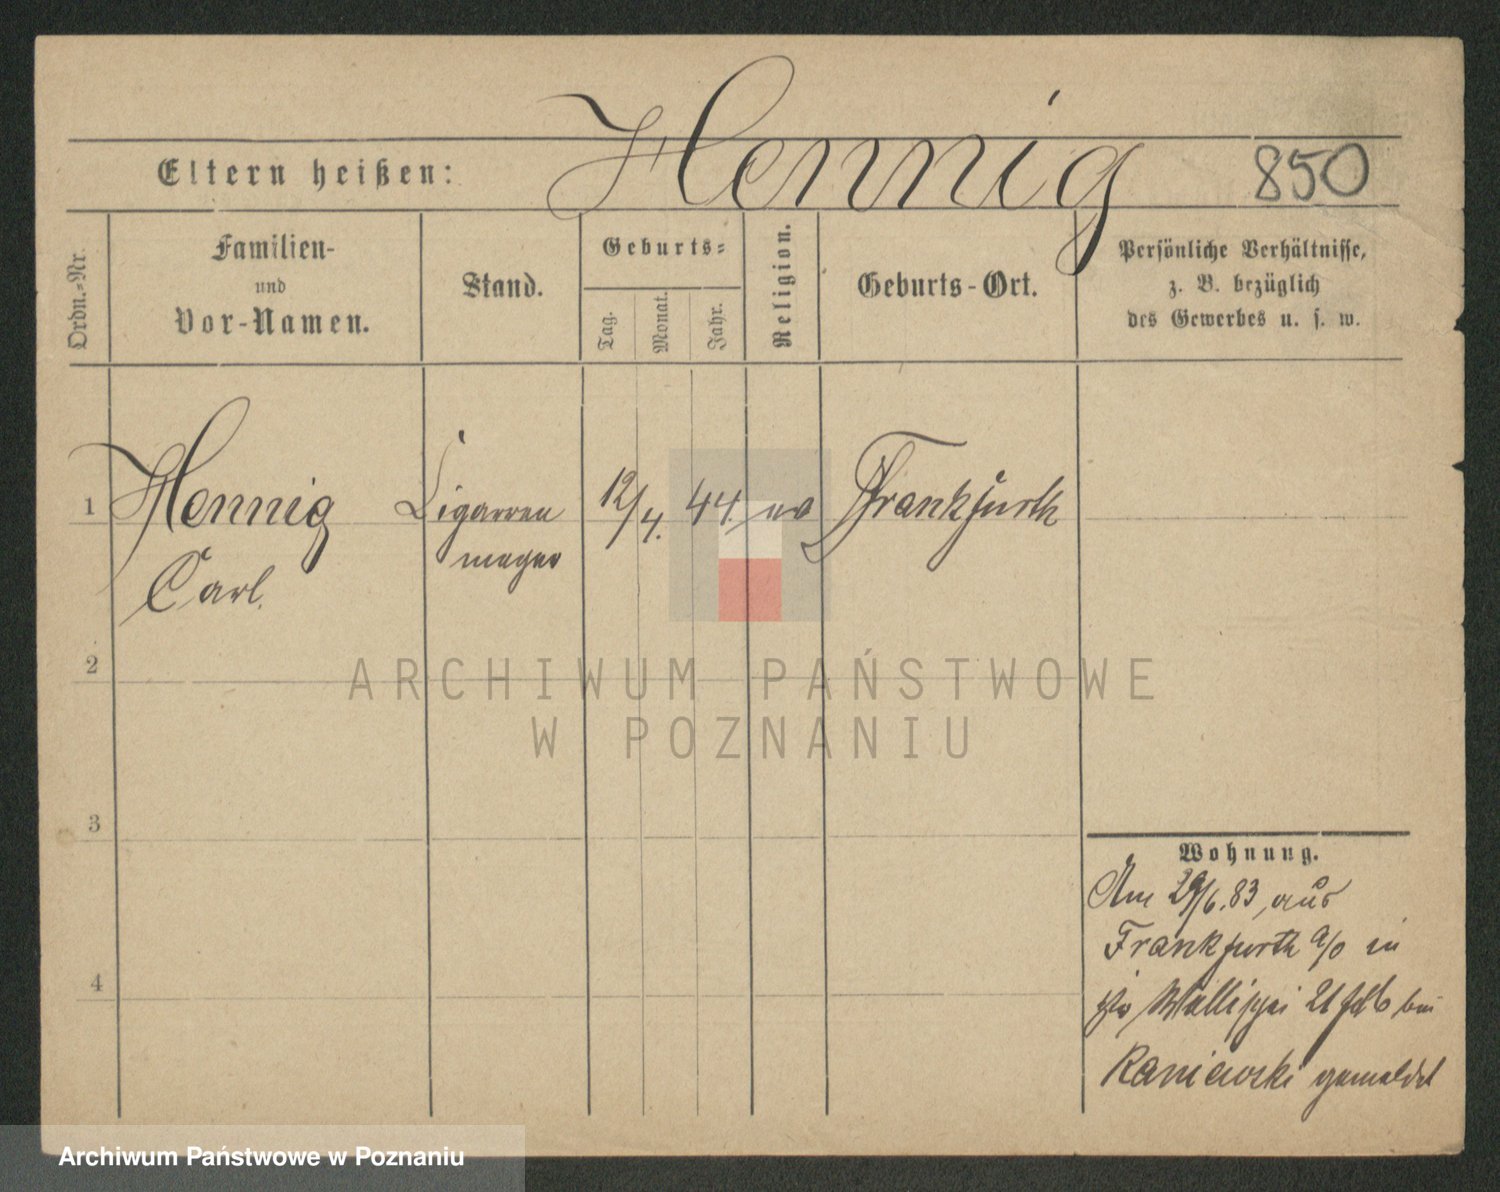 Hennig
Eltern heißen:
850
Ordn.-Nr.
Familien-
und
Vor-Namen.
Stand.
Geburts-
Tag.
Monat.
Jahr.
Religion.
Geburts-Ort.
Persönliche Verhältnisse,
z. B. bezüglich
des Gewerbes u. s. w.
1
Hennig
Cigarren
12/4. 44.
ev
Frankfurth
Carl.
2
ARCHIWUM PAŃSTWOWE
W POZNANIU
3
Wohnung.
Am 29/6. 83, aus
Frankfurth a/o in
4
21 bei
gemeldet
Archiwum Państwowe w Poznaniu